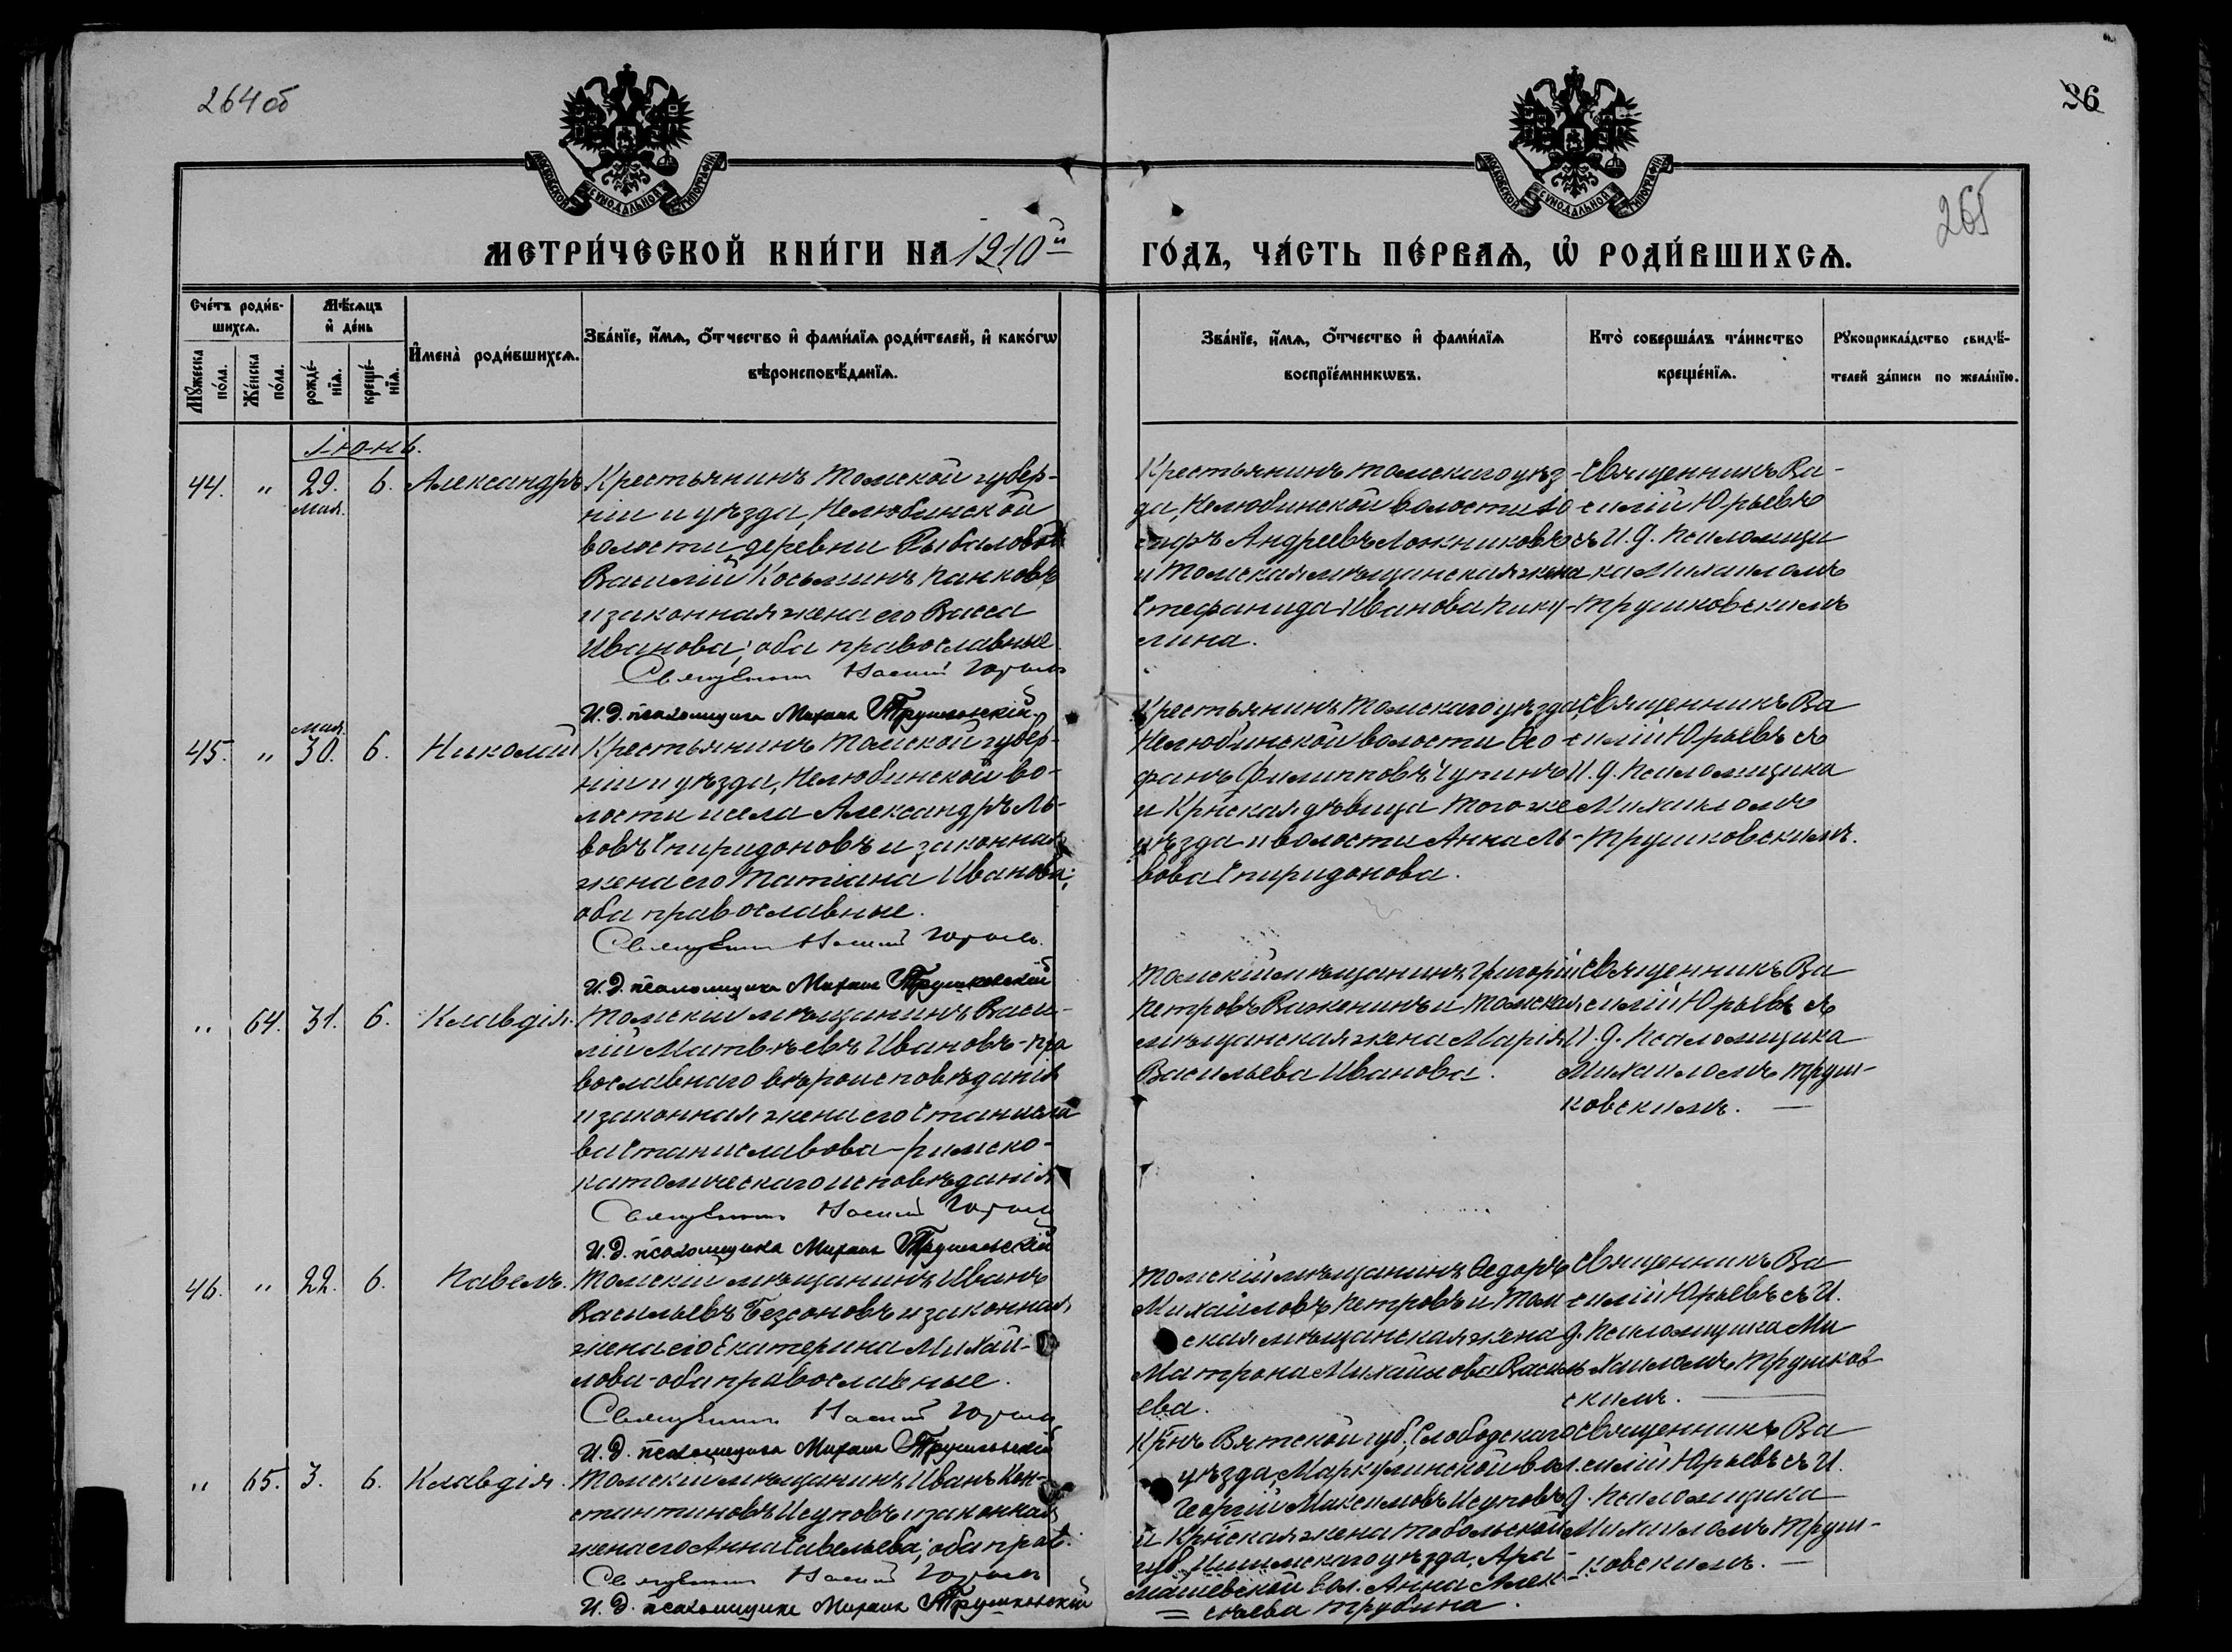 264 об
26
265
МОСКОВСКОЙ СѴНОДАЛЬНОЙ ТИПОГРАФІИ
МОСКОВСКОЙ СѴНОДАЛЬНОЙ ТИПОГРАФІИ
МЕТРИ́ЧЕСКОЙ КНИ́ГИ НА 1910й
ГО́ДЪ, ЧА́СТЬ ПЕ́РВАѦ, Ѡ҆ РОДИ́ВШИХСѦ.
Сче́тъ роди́в-
шихсѧ.
Мꙋ́жеска
по́ла.
Же́нска
по́ла.
Мѣ́сѧцъ
и҆ де́нь
рожде́-
нїѧ.
креще́-
нїѧ.
И҆мена̀ роди́вшихсѧ.
Зва́нїе, и҆́мѧ, ѻ҆́тчество и҆ фами́лїѧ роди́телей, и҆ како́гѡ
вѣроисповѣ́данїѧ.
Зва́нїе, и҆́мѧ, ѻ҆́тчество и҆ фами́лїѧ
воспрїе́мникѡвъ.
Кто̀ соверша́лъ та́инство
креще́нїѧ.
Рꙋкоприкла́дство свидѣ́-
телей за́писи по жела́нїю.
Іюнь.
44. " 29. мая. 6. Александръ
Крестьянинъ Томской губер-
ніи и уѣзда, Нелюбинской
волости, деревни Рыбаловой
Василій Косьминъ Панковъ
и законная жена его Васса
Иванова; оба православные
Священникъ Василій Юрьевъ
И. д. псаломщика Михаилъ Трушковскій
Крестьянинъ Томскаго уѣз-
да, Нелюбинской волости Іо
сифъ Андреевъ Ложниковъ
и Томская мѣщанская жена
Стефанида Иванова Пику-
лина.
Священникъ Ва-
силій Юрьевъ
съ И. д. Псаломщи
ка Михаиломъ
Трушковскимъ
45. " мая. 30. 6. Николай
Крестьянинъ Томской губер-
ніи и уѣзда, Нелюбинской во-
лости и села Александръ Ль-
вовъ Спиридоновъ и законная
жена его Татіана Иванова;
оба православные.
Священникъ Василій Юрьевъ.
И. д. псаломщика Михаилъ Трушковскій
Крестьянинъ Томскаго уѣзда,
Нелюбинской волости Ѳео
фанъ Филипповъ Чупинъ
и Крнская дѣвица того же
уѣзда и волости Анна Ль-
вова Спиридонова.
Священникъ Ва
силій Юрьевъ съ
И. д. Псаломщика
Михаиломъ
Трушковскимъ.
" 64. 31. 6. Клавдія.
Томскій мѣщанинъ Васи-
лій Матвѣевъ Ивановъ - пра
вославнаго вѣроисповѣданія
и законная жена его Станисла
ва Станиславова - римско-
католическаго исповѣданія
Священникъ Василій Юрьевъ
И. д. псаломщика Михаилъ Трушковскій
Томскій мѣщанинъ Григорій
Петровъ Важенинъ и Томская
мѣщанская жена Марія
Васильева Иванова.
Священникъ Ва
силій Юрьевъ съ
И. д. Псаломщика
Михаиломъ Труш-
ковскимъ. —
46. " 22. 6. Павелъ.
Томскій мѣщанинъ Иванъ
Васильевъ Безсоновъ и законная
жена его Екатерина Михай-
лова - оба православные.
Священникъ Василій Юрьевъ
И. д. псаломщика Михаилъ Трушковскій
Томскій мѣщанинъ Ѳедоръ
Михайловъ Петровъ и Том
ская мѣщанская жена
Матрона Михайлова Василь
ева.
Священникъ Ва
силій Юрьевъ съ И.
д. Псаломщика Ми
хаиломъ Трушков
скимъ. —
" 65. 3. 6. Клавдія.
Томскій мѣщанинъ Иванъ Кон-
стантиновъ Исуповъ и законная
жена его Анна Савельева; оба прав.
Священникъ Василій Юрьевъ
И. д. псаломщика Михаилъ Трушковскій
Крнъ Вятской губ., Слободскаго
уѣзда, Маркулинской вол.
Георгій Максимовъ Исуповъ
и Крнская жена Тобольской
губ., Ишимскаго уѣзда, Ара-
машевской вол. Анна Алек-
сѣева Трубина.
Священникъ Ва
силій Юрьевъ съ И.
д. Псаломщика
Михаиломъ Труш-
ковскимъ. —